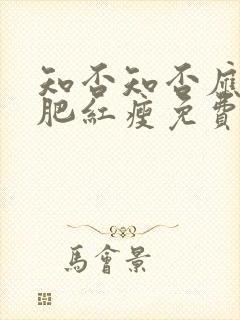 知否知否應
肥紅瘦免費
馬會景